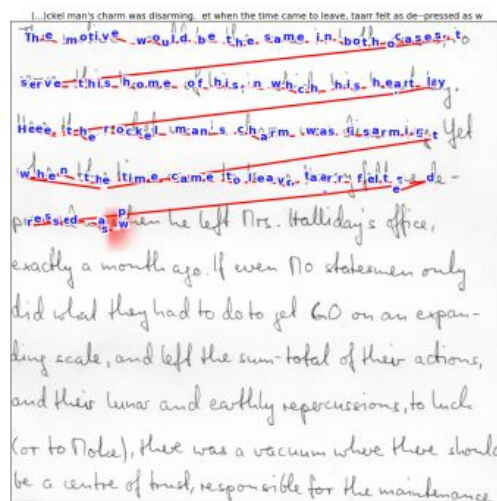 [...]ckel man's charm was disarming. et when the time came to leave, taarr felt as de--pressed as w
The motive would be the same in both cases, to
serve this home of his, in which his heart lay.
the rocket man's charm was disarming. Yet
when the time came to leave, felt as de-
pressed as when he left Mrs. Halliday's office,
exactly a month ago. If even no statesmen only
did what they had to do to get 60 on an expan-
ding scale, and left the sum-total of their actions,
and their lunar and earthly repercussions, to luck
(or to Moke), there was a vacuum where there should
be a centre of trust, responsible for the maintenance